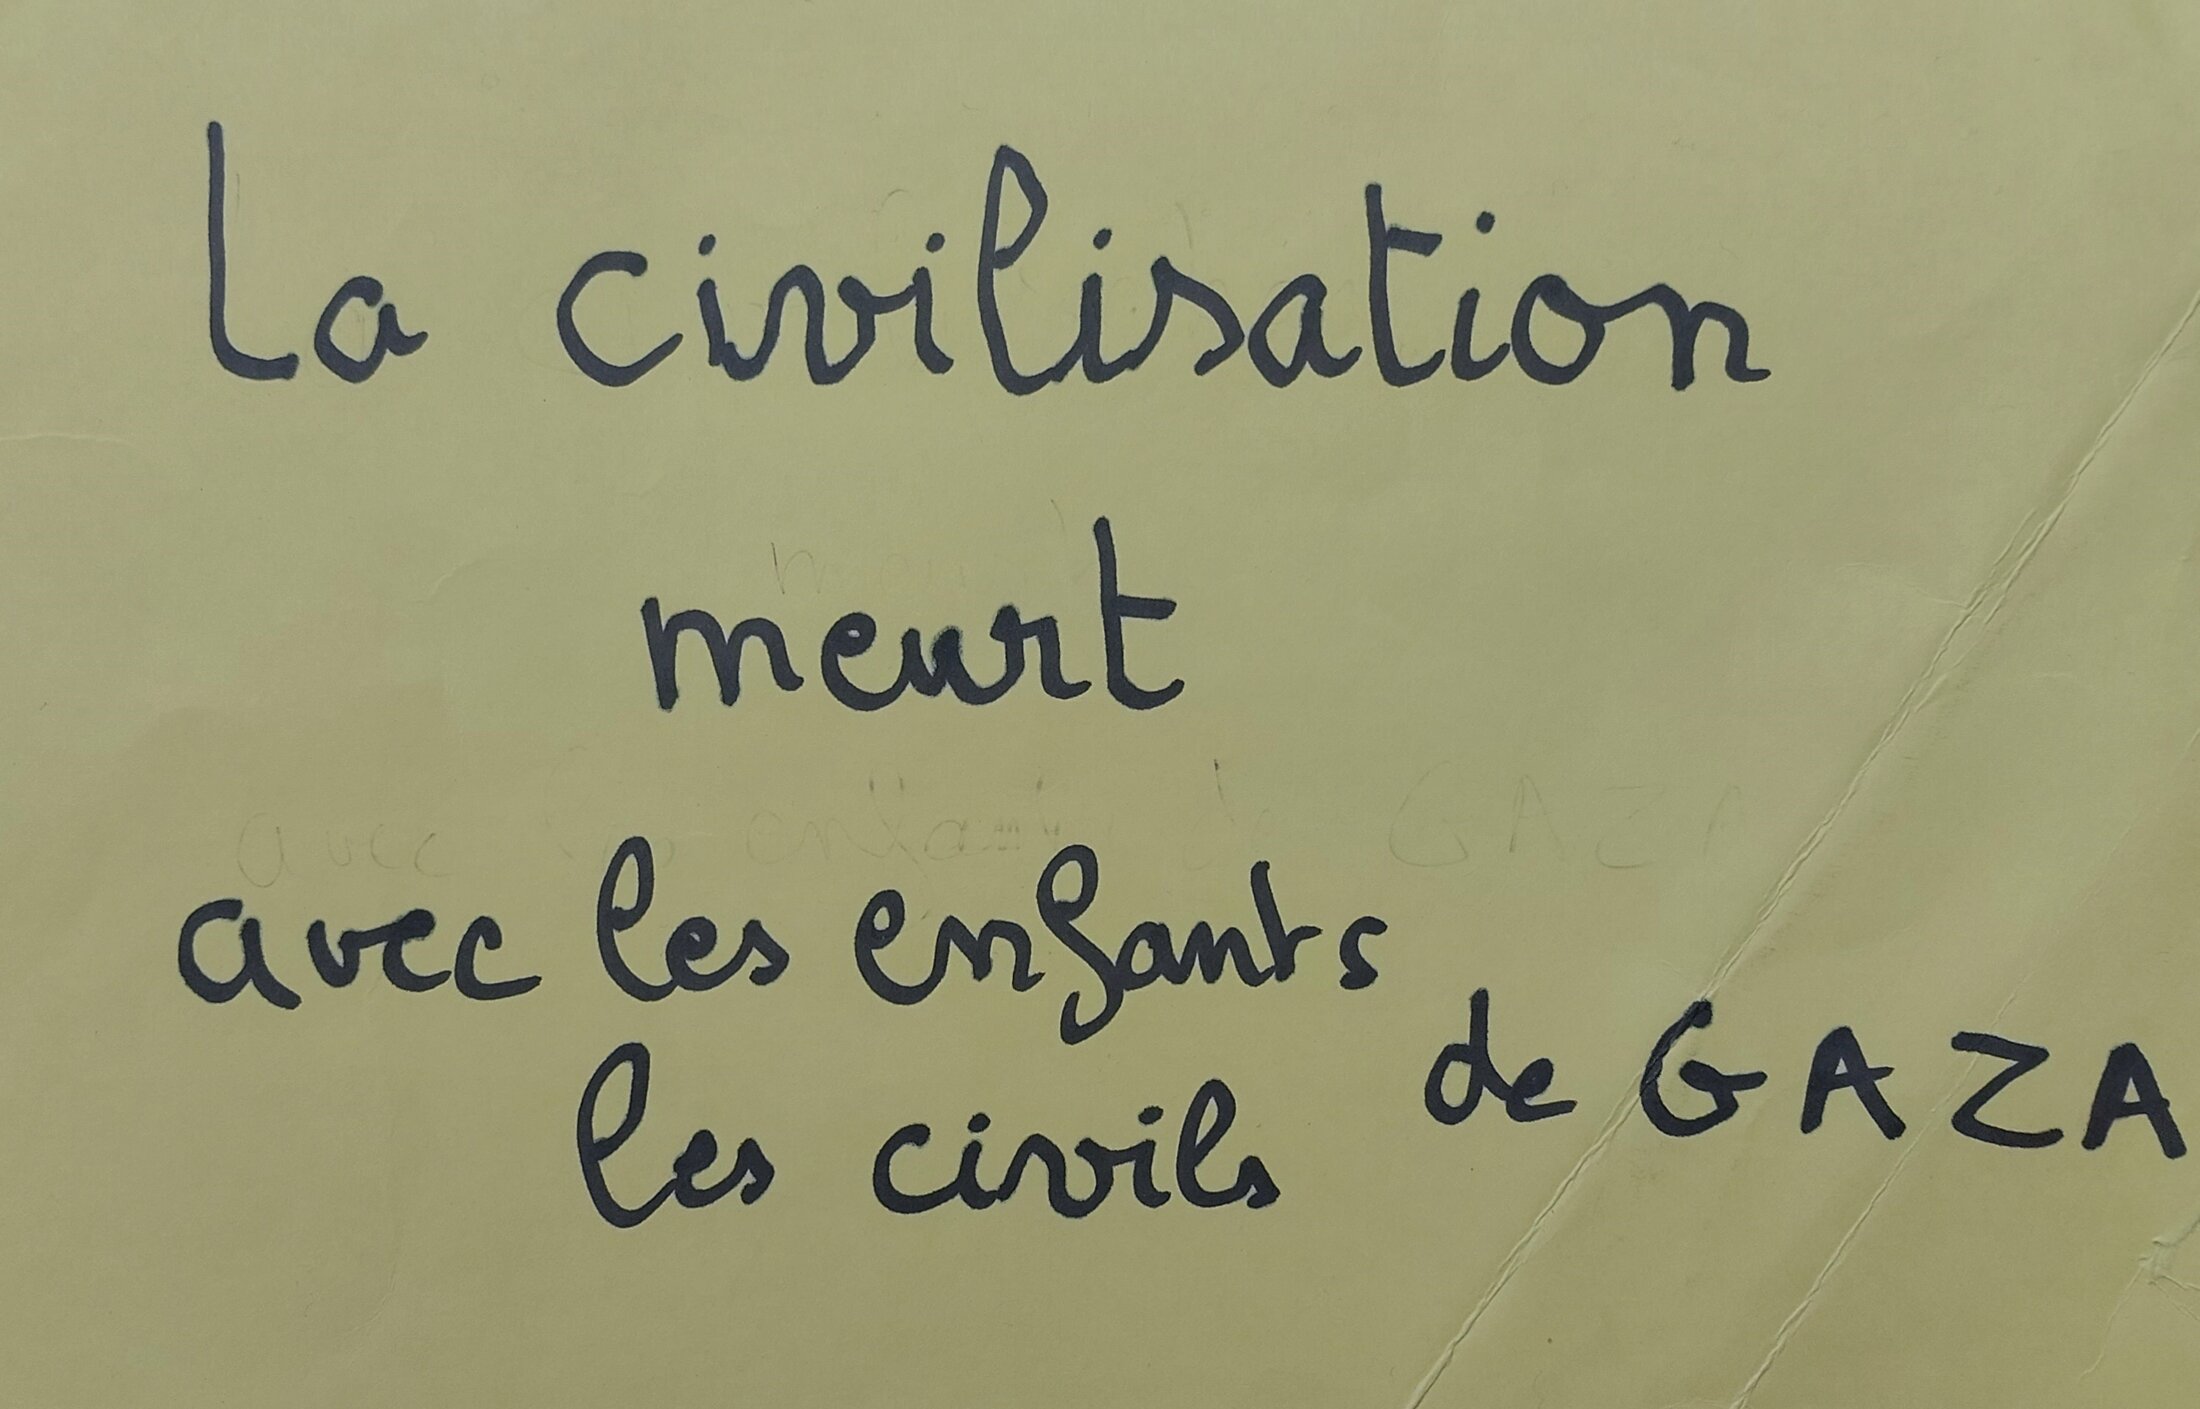 La civilisation
meurt
avec les enfants
les civils
de GAZA